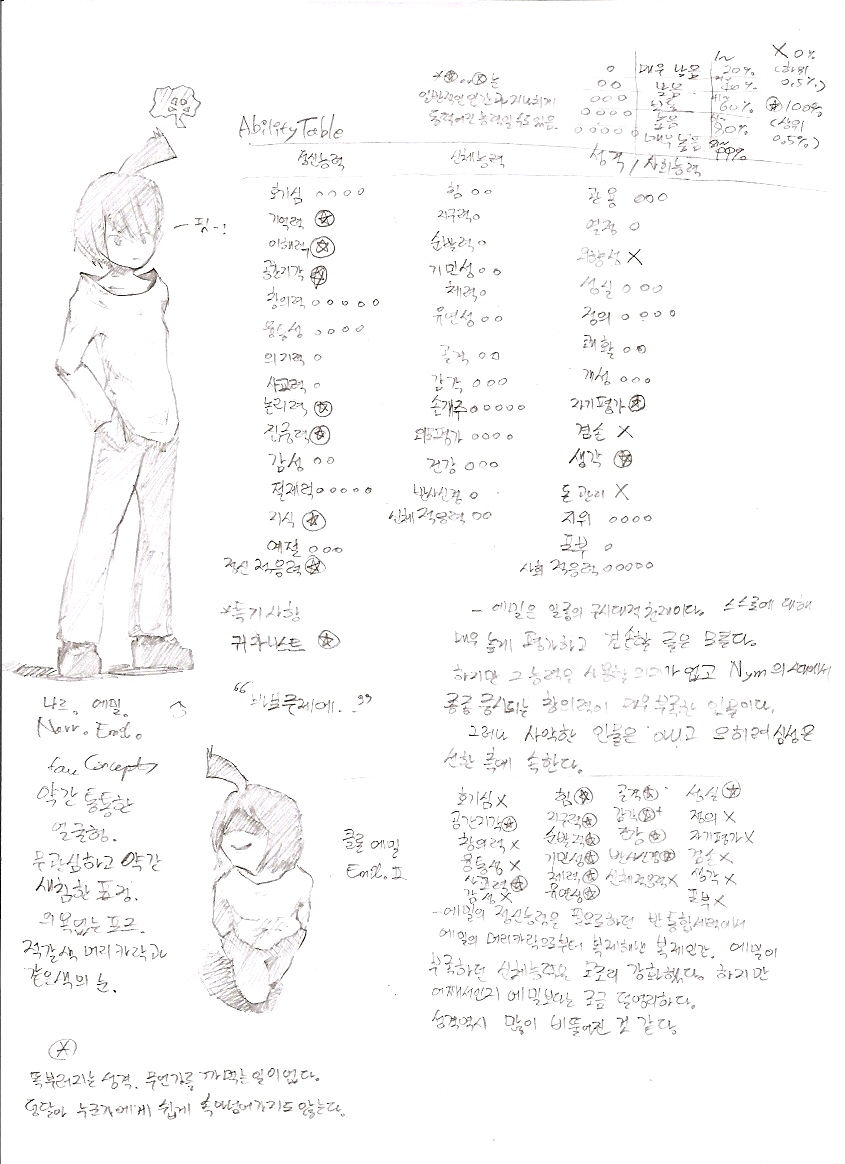 Ability Table
*✪...✪는
일반적인 인간과 지나치게
동떨어진 능력일 수도 있음.
○ 매우 낮음 1~20%
○○ 낮음 40%
○○○ 보통 60%
○○○○ 높음 80%
○○○○○ 매우 높음 99%
X 0%
(하위
0.5%)
✪ 100%
(상위
0.5%)
핑-!
정신능력
호기심 ○○○○
기억력 ✪
이해력 ✪
공간지각 ✪
창의력 ○○○○○
융통성 ○○○○
의지력 ○
사교력 ○
논리력 ✪
집중력 ✪
감성 ○○
절제력 ○○○○○
지식 ✪
예절 ○○○
정신 적응력 ✪
*특기사항
귀차니스트 ✪
"바보 주제에.."
신체능력
힘 ○○
지구력 ○
순발력 ○
기민성 ○○
체력 ○
유연성 ○○
골격 ○○
감각 ○○○
손재주 ○○○○○
외모평가 ○○○○
건강 ○○○
반사신경 ○
신체 적응력 ○○
성격/사회능력
관용 ○○○
열정 ○
X
성실 ○○○
정의 ○○○○
쾌활 ○○
개성 ○○○
자기평가 ✪
겸손 X
생각 ✪
돈 관리 X
지위 ○○○○
포부 ○
사회 적응력 ○○○○○
- 에밀은 일종의 구시대적 천재이다. 스스로에 대해
매우 높게 평가하고 겸손할 줄은 모른다.
하지만 그 능력은 사용할 의지가 없고 Nym의 시대에서
종종 중시되는 창의력이 매우 부족한 인물이다.
그러나 사악한 인물은 아니고 오히려 심성은
선한 쪽에 속한다.
나르. 에밀.
Narr. Emil.
Concept
약간 통통한
얼굴형.
무관심하고 약간
새침한 표정.
의욕없는 포즈.
적갈색 머리카락과
같은색의 눈.
클론 에밀
Emil. II
호기심 X
공간지각 ✪
창의력 X
융통성 X
사교력 ✪
감성 X
힘 ✪
지구력 ✪
순발력 ✪
기민성 ✪
체력 ✪
유연성 ✪
골격 ✪
감각 ✪+
건강 ✪
반사신경 ✪
신체적응력 X
성실 ✪
정의 X
자기평가 X
겸손 X
생각 X
포부 X
- 에밀의 정신능력을 필요로하던 반 통합세력에서
에밀의 머리카락으로부터 복제해낸 복제인간. 에밀이
부족하던 신체능력은 고도로 강화했다. 하지만
어째서인지 에밀보다는 조금 덜영리하다.
성격역시 많이 비뚤어진 것 같다.
✪
똑부러지는 성격. 무언가를 까먹는 일이 없다.
덩달아 누군가에게 쉽게 속아넘어가지도 않는다.